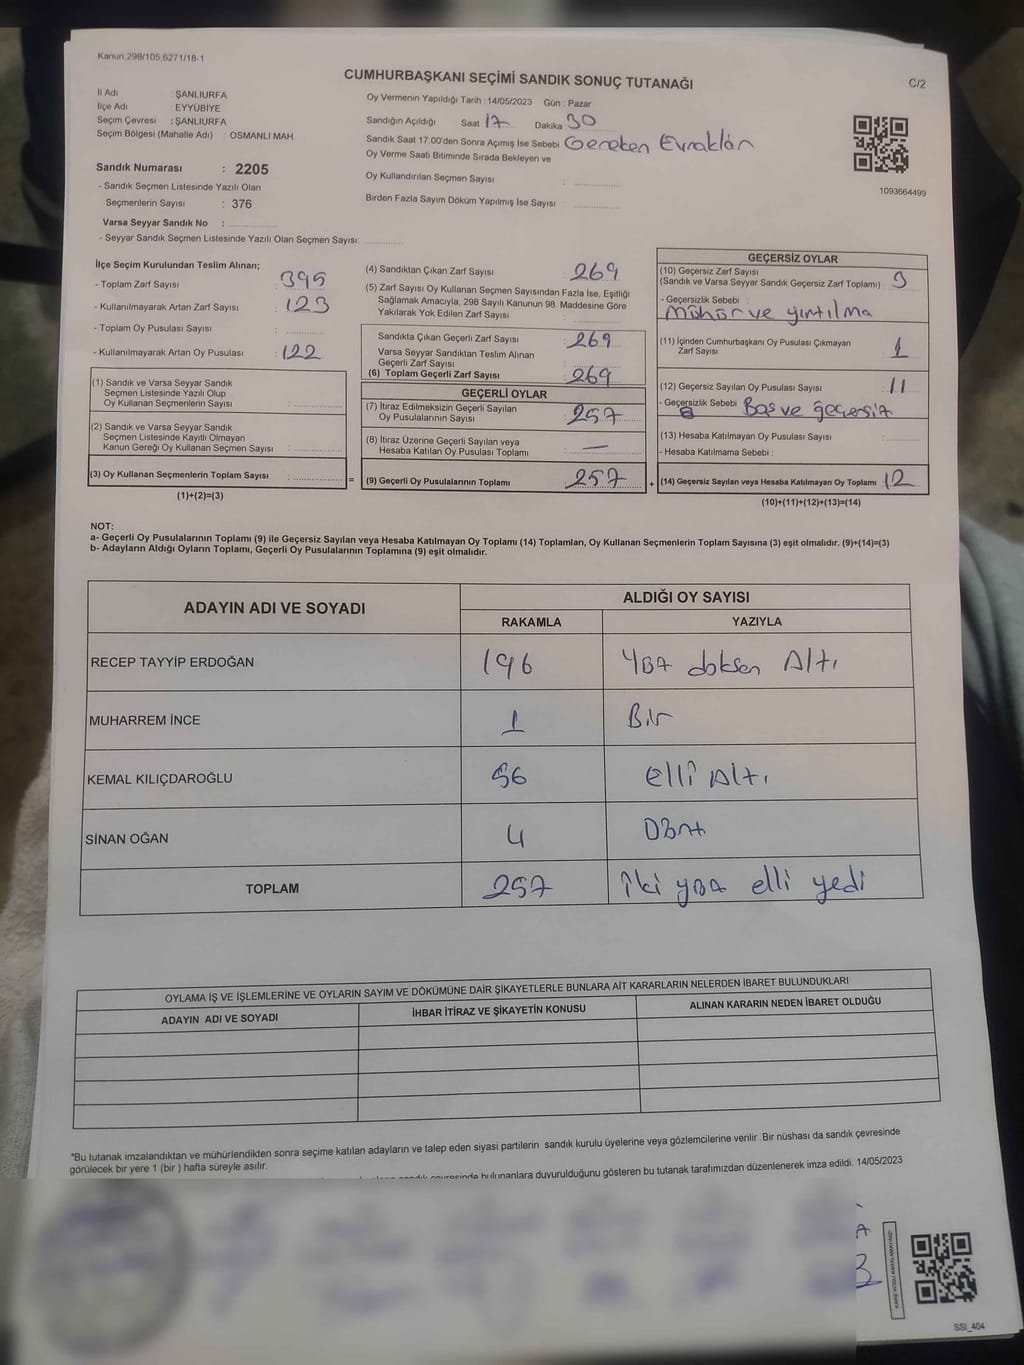 Kanun;298/105,6271/18-1
CUMHURBAŞKANI SEÇİMİ SANDIK SONUÇ TUTANAĞI
C/2
İl Adı : ŞANLIURFA
İlçe Adı : EYYÜBİYE
Seçim Çevresi : ŞANLIURFA
Seçim Bölgesi (Mahalle Adı) : OSMANLI MAH.
Oy Vermenin Yapıldığı Tarih :14/05/2023 Gün : Pazar
Sandığın Açıldığı Saat 17 Dakika 30
Sandık Saat 17:00'den Sonra Açımış İse Sebebi Gereken Evrakları
Oy Verme Saati Bitiminde Sırada Bekleyen ve
Oy Kullandırılan Seçmen Sayısı :
Birden Fazla Sayım Döküm Yapılmış İse Sayısı :
1093664499
Sandık Numarası : 2205
- Sandık Seçmen Listesinde Yazılı Olan
Seçmenlerin Sayısı : 376
Varsa Seyyar Sandık No :
- Seyyar Sandık Seçmen Listesinde Yazılı Olan Seçmen Sayısı:
İlçe Seçim Kurulundan Teslim Alınan;
- Toplam Zarf Sayısı : 395
- Kullanılmayarak Artan Zarf Sayısı : 123
- Toplam Oy Pusulası Sayısı :
- Kullanılmayarak Artan Oy Pusulası : 122
(1) Sandık ve Varsa Seyyar Sandık
Seçmen Listesinde Yazılı Olup
Oy Kullanan Seçmenlerin Sayısı :
(2) Sandık ve Varsa Seyyar Sandık
Seçmen Listesinde Kayıtlı Olmayan
Kanun Gereği Oy Kullanan Seçmen Sayısı :
(3) Oy Kullanan Seçmenlerin Toplam Sayısı :
(1)+(2)=(3)
=
(4) Sandıktan Çıkan Zarf Sayısı : 269
(5) Zarf Sayısı Oy Kullanan Seçmen Sayısından Fazla İse, Eşitliği
Sağlamak Amacıyla, 298 Sayılı Kanunun 98. Maddesine Göre
Yakılarak Yok Edilen Zarf Sayısı :
Sandıkta Çıkan Geçerli Zarf Sayısı : 269
Varsa Seyyar Sandıktan Teslim Alınan
Geçerli Zarf Sayısı :
(6) Toplam Geçerli Zarf Sayısı : 269
GEÇERLİ OYLAR
(7) İtiraz Edilmeksizin Geçerli Sayılan
Oy Pusulalarının Sayısı : 257
(8) İtiraz Üzerine Geçerli Sayılan veya
Hesaba Katılan Oy Pusulası Toplamı : —
(9) Geçerli Oy Pusulalarının Toplamı : 257
+
GEÇERSİZ OYLAR
(10) Geçersiz Zarf Sayısı
(Sandık ve Varsa Seyyar Sandık Geçersiz Zarf Toplamı) : 3
- Geçersizlik Sebebi :
Mühür ve yırtılma
(11) İçinden Cumhurbaşkanı Oy Pusulası Çıkmayan
Zarf Sayısı : 1
(12) Geçersiz Sayılan Oy Pusulası Sayısı : 11
- Geçersizlik Sebebi Boş ve geçersiz
(13) Hesaba Katılmayan Oy Pusulası Sayısı :
- Hesaba Katılmama Sebebi :
(14) Geçersiz Sayılan veya Hesaba Katılmayan Oy Toplamı : 12
(10)+(11)+(12)+(13)=(14)
NOT:
a- Geçerli Oy Pusulalarının Toplamı (9) ile Geçersiz Sayılan veya Hesaba Katılmayan Oy Toplamı (14) Toplamları, Oy Kullanan Seçmenlerin Toplam Sayısına (3) eşit olmalıdır. (9)+(14)=(3)
b- Adayların Aldığı Oyların Toplamı, Geçerli Oy Pusulalarının Toplamına (9) eşit olmalıdır.
ADAYIN ADI VE SOYADI
ALDIĞI OY SAYISI
RAKAMLA YAZIYLA
RECEP TAYYİP ERDOĞAN 196 Yüz doksan Altı
MUHARREM İNCE 1 Bir
KEMAL KILIÇDAROĞLU 56 elli Altı
SİNAN OĞAN 4 Dört
TOPLAM 257 iki yüz elli yedi
OYLAMA İŞ VE İŞLEMLERİNE VE OYLARIN SAYIM VE DÖKÜMÜNE DAİR ŞİKAYETLERLE BUNLARA AİT KARARLARIN NELERDEN İBARET BULUNDUKLARI
ADAYIN ADI VE SOYADI İHBAR İTİRAZ VE ŞİKAYETİN KONUSU ALINAN KARARIN NEDEN İBARET OLDUĞU
*Bu tutanak imzalandıktan ve mühürlendikten sonra seçime katılan adayların ve talep eden siyasi partilerin sandık kurulu üyelerine veya gözlemcilerine verilir .Bir nüshası da sandık çevresinde
görülecek bir yere 1 (bir ) hafta süreyle asılır.
bulunanlara duyurulduğunu gösteren bu tutanak tarafımızdan düzenlenerek imza edildi. 14/05/2023
SSI_404